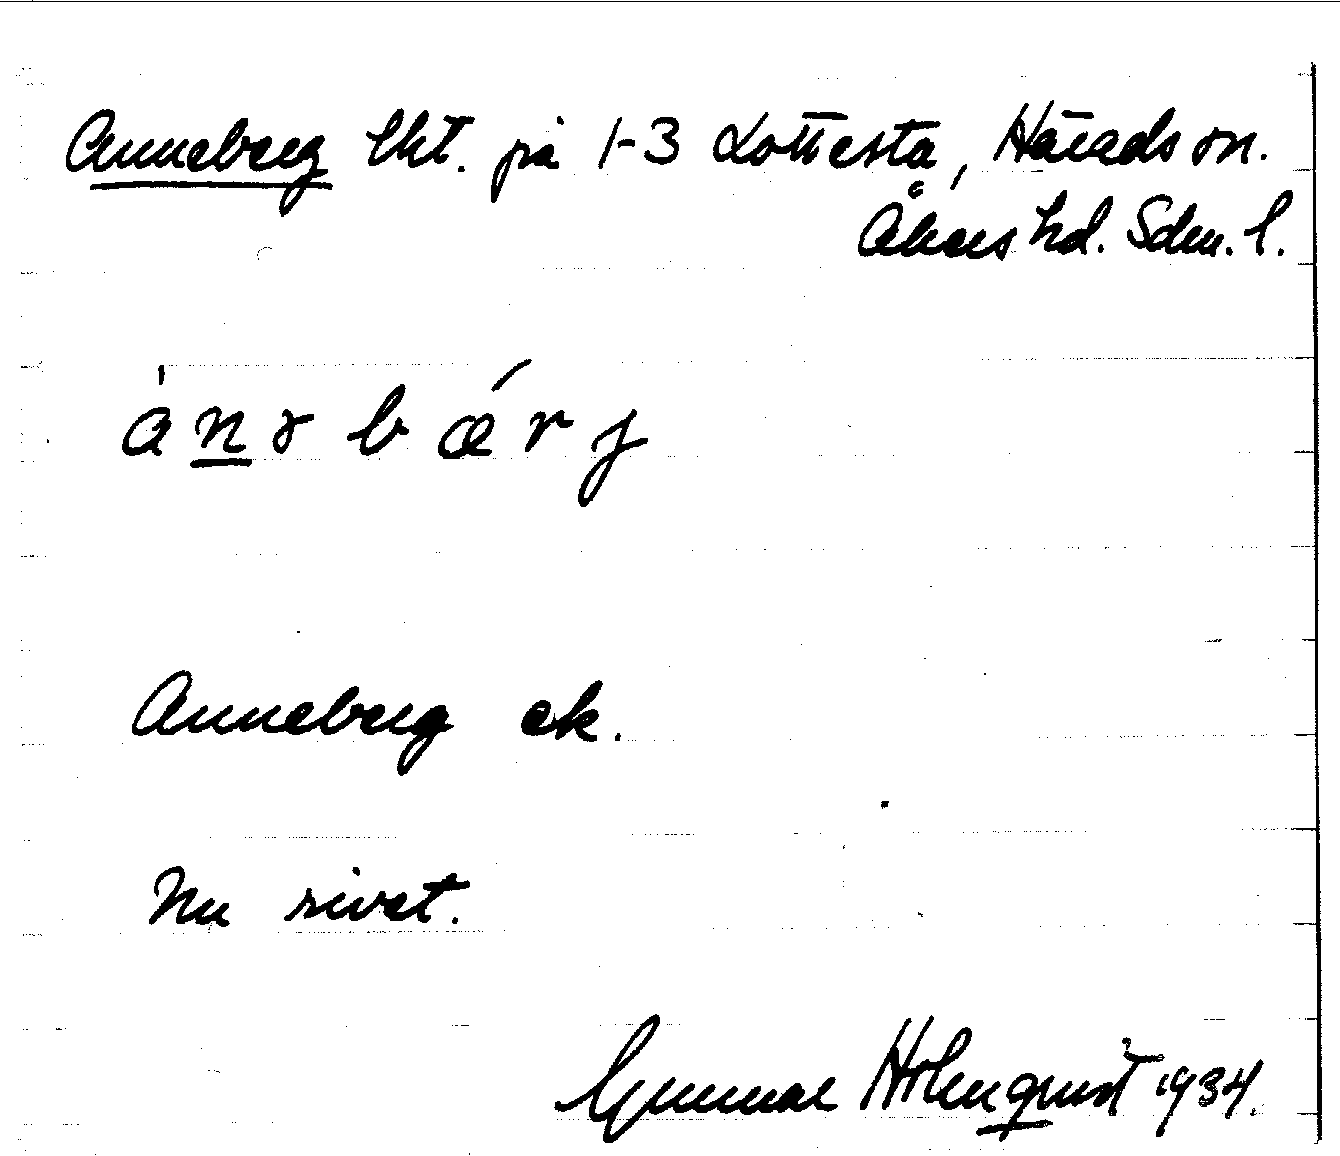 Anneberg lht. på 1-3 Lottesta, Härads sn.
Åkers hd. Sdm. l.
ànəbǽrj
Anneberg ek.
Nu rivet.
Gunnar Holmquist 1934.